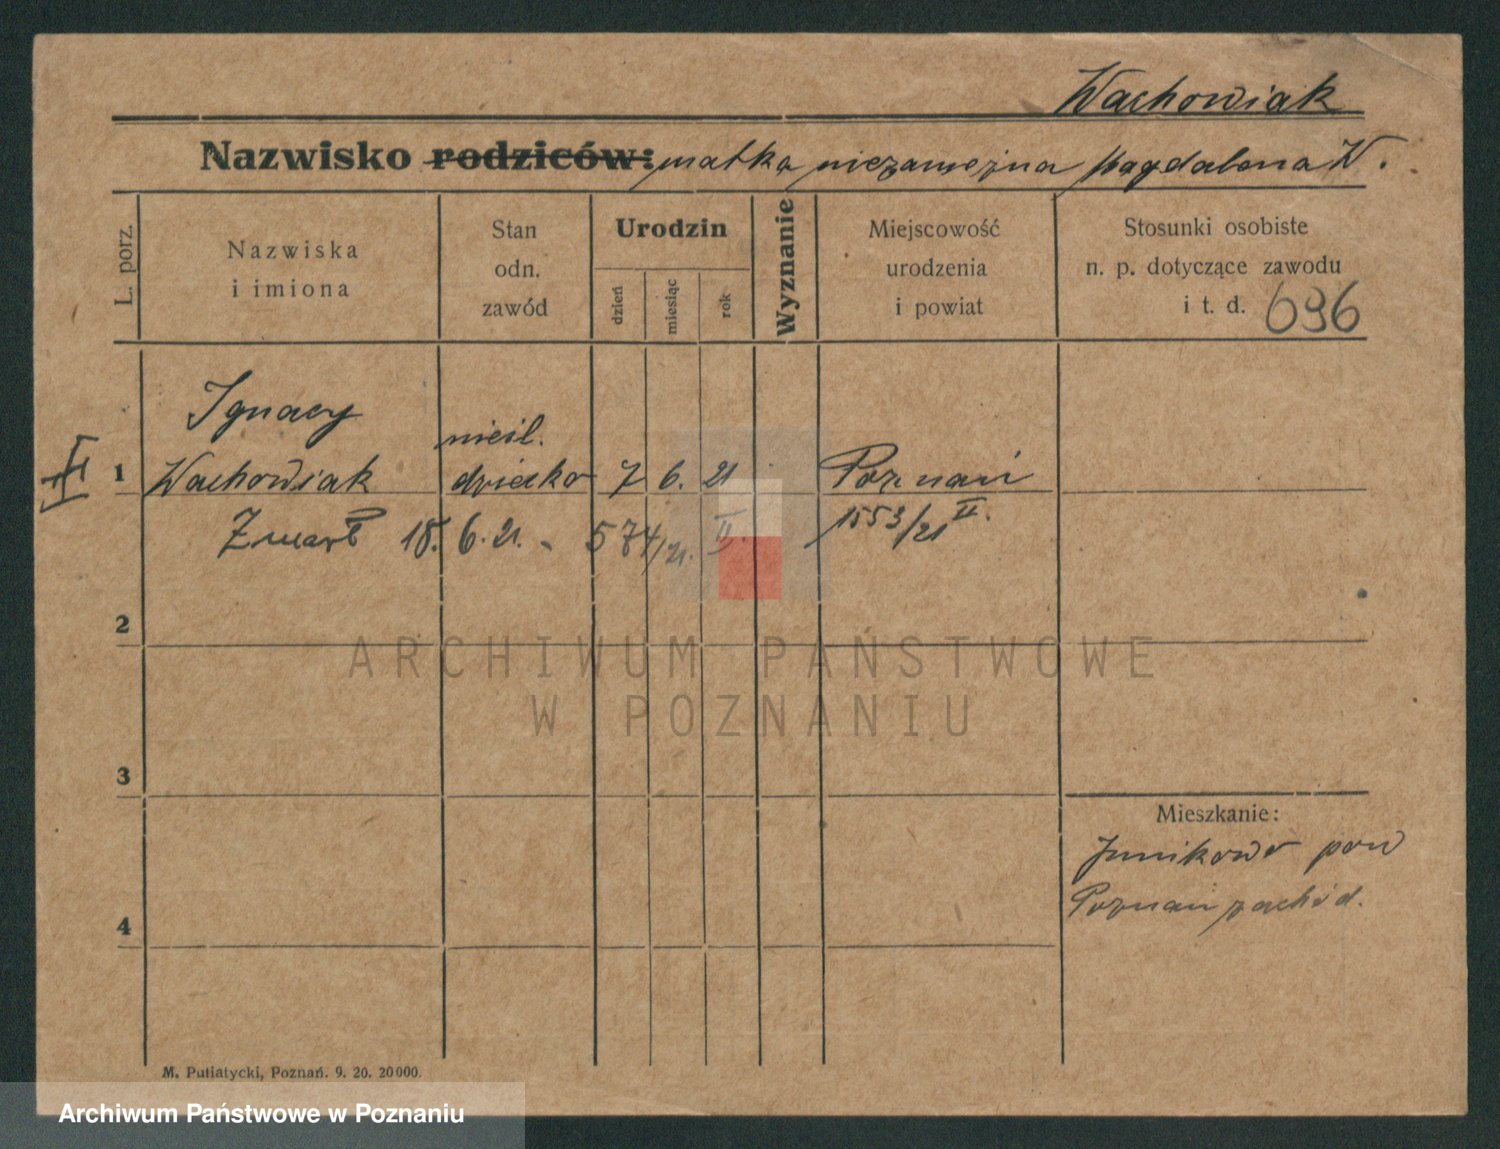 Wachowiak
Nazwisko rodziców: matka niezamężna Magdalena W.
L. porz.
Nazwiska
i imiona
Stan
odn.
zawód
Urodzin
dzień
miesiąc
rok
Wyznanie
Miejscowość
urodzenia
i powiat
Stosunki osobiste
n. p. dotyczące zawodu
i t. d. 696
Ignacy
nieśl.
II
1 Wachowiak dziecko 7 6. 21 Poznań
Zmarł 18. 6. 21. - 574/21. II. 1553/21 II.
2
ARCHIWUM PAŃSTWOWE
W POZNANIU
3
Mieszkanie:
Junikowo pow
Poznań zachód.
4
M. Putiatycki, Poznań. 9. 20. 20000.
Archiwum Państwowe w Poznaniu